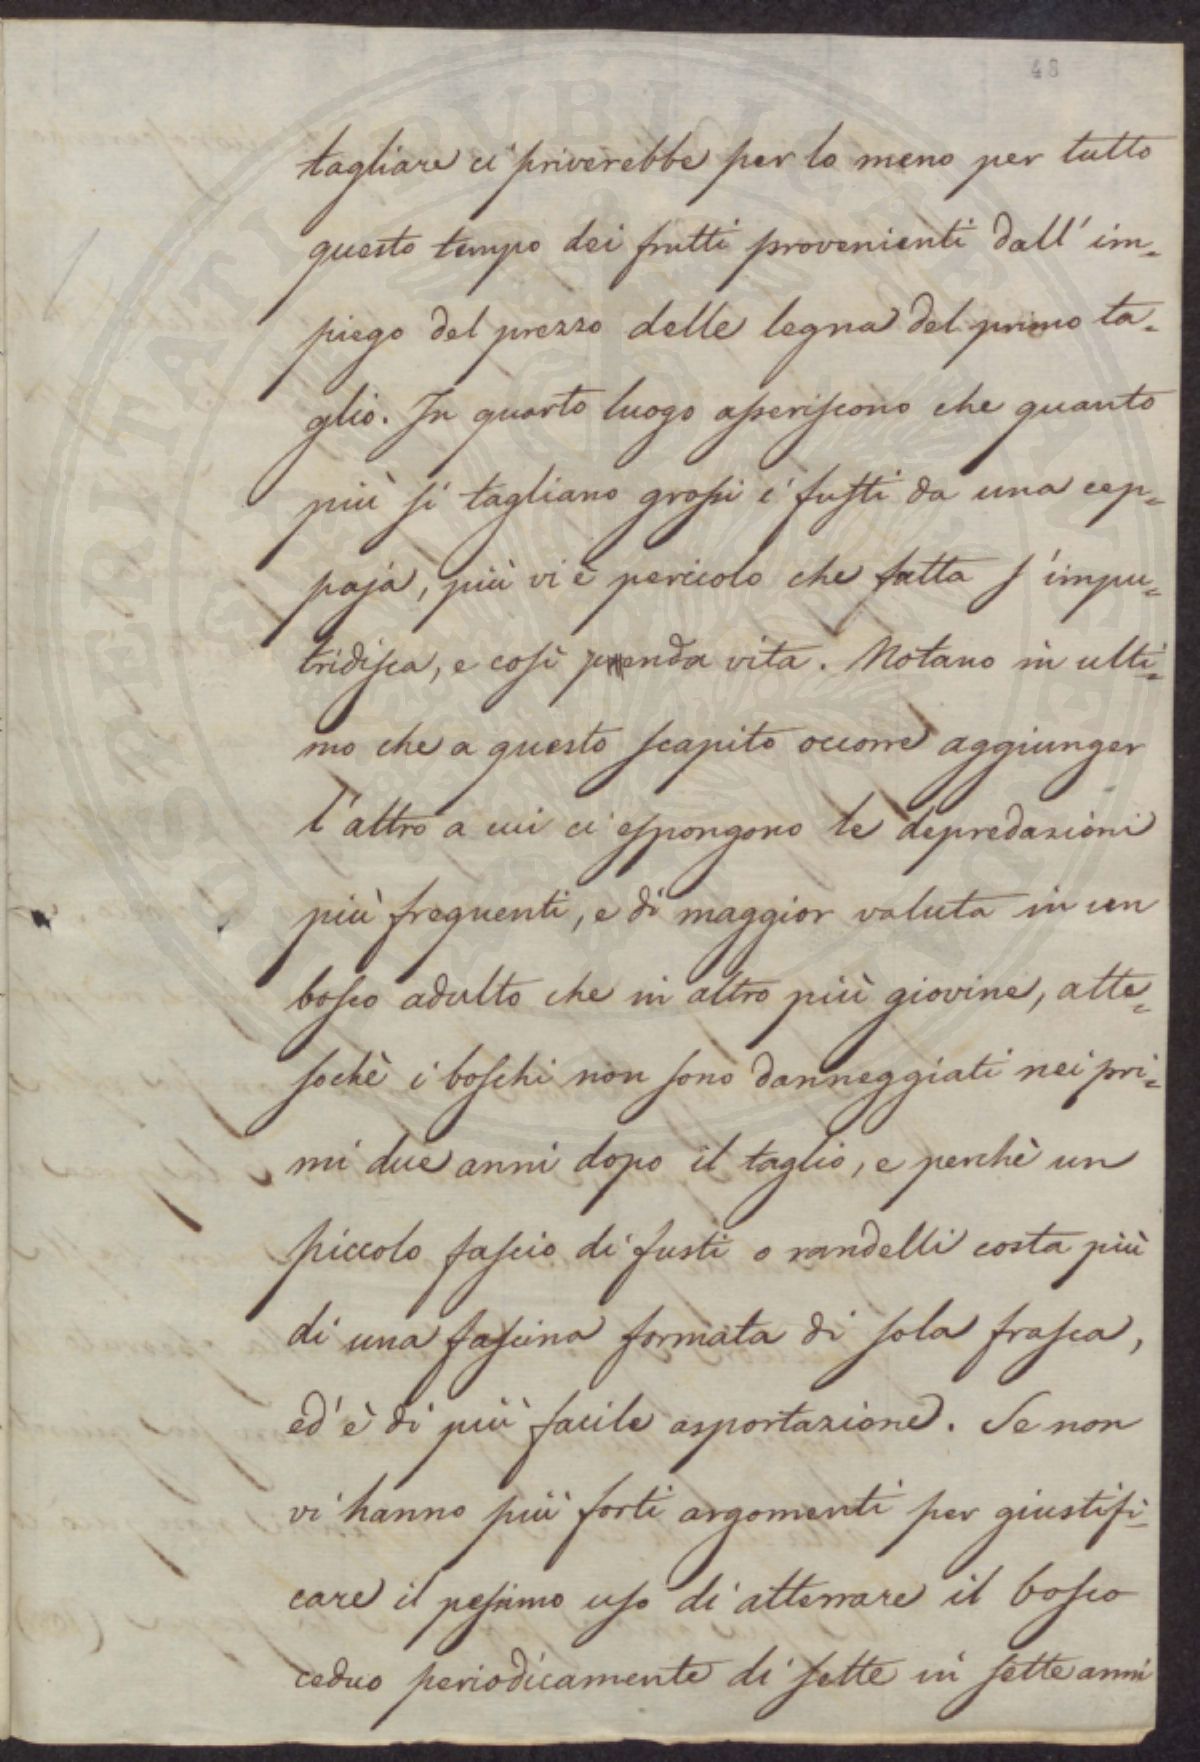 48
tagliare ci priverebbe per lo meno per tutto
questo tempo dei frutti provenienti dall' im=
piego del prezzo delle legna del primo ta=
glio. In quarto luogo asseriscono che quanto
più si tagliano grossi i fusti da una cep=
paja, più vi è pericolo che fatta s'impu=
tridisca, e così prenda vita. Notano in ulti=
mo che a questo scapito occorre aggiunger
l'altro a cui ci espongono le depredazioni
più frequenti, e di maggior valuta in un
bosco adulto che in altro più giovine, atte=
sochè i boschi non sono danneggiati nei pri=
mi due anni dopo il taglio, e perchè un
piccolo fascio di fusti o randelli costa più
di una fascina formata di sola frasca,
ed è di più facile asportazione. Se non
vi hanno più forti argomenti per giustifi=
care il pessimo uso di atterrare il bosco
ceduo periodicamente di sette in sette anni